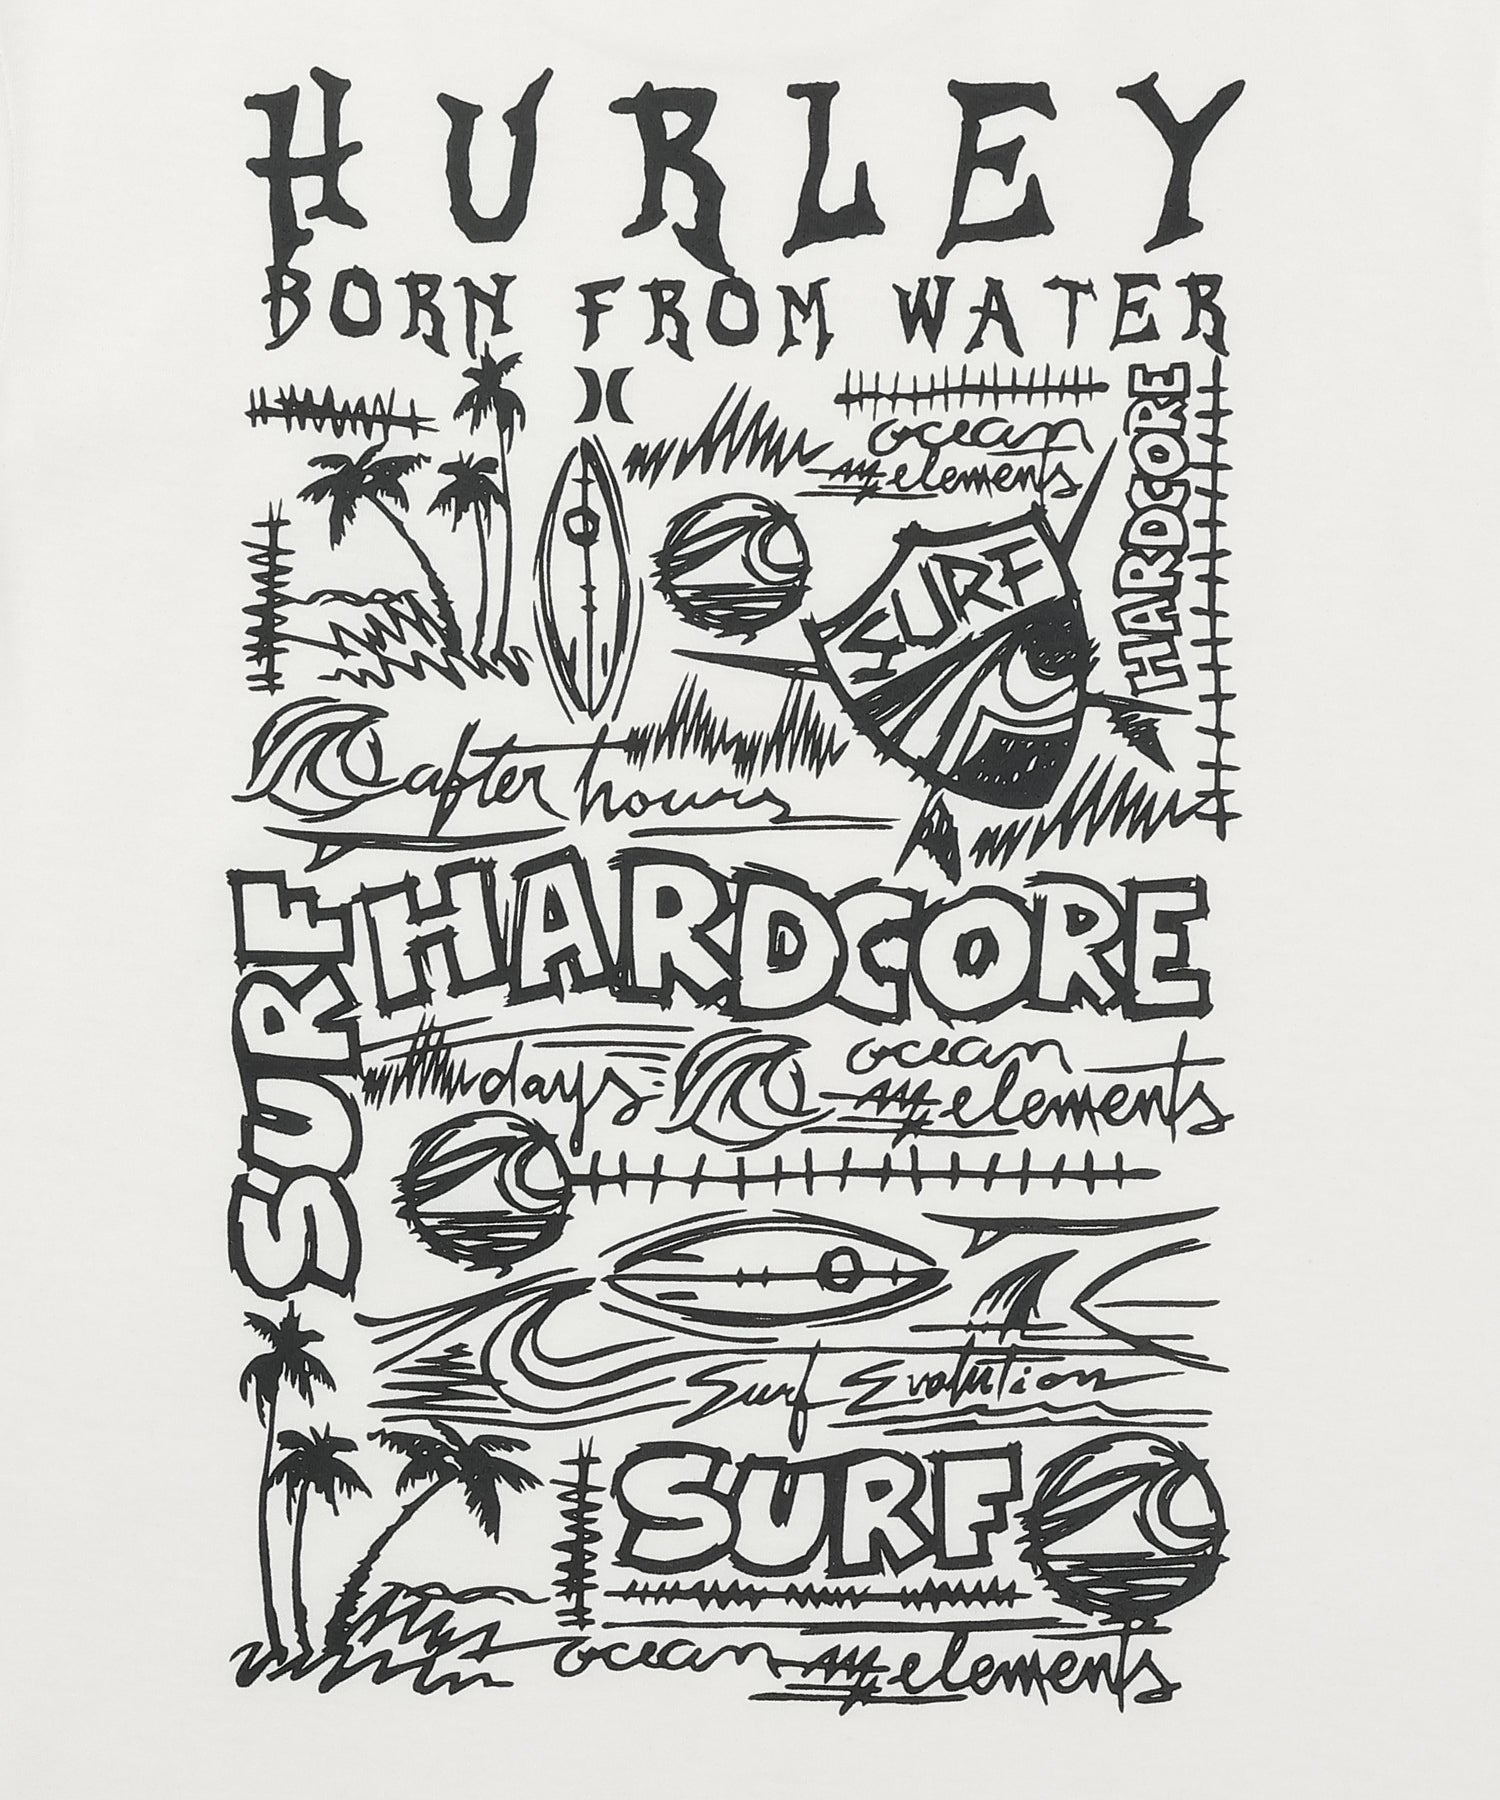 HURLEY
BORN FROM WATER
ocean
elements
HARDCORE
SURF
after hours
HARDCORE
SURF
days
ocean
elements
Surf Evolution
SURF
ocean elements